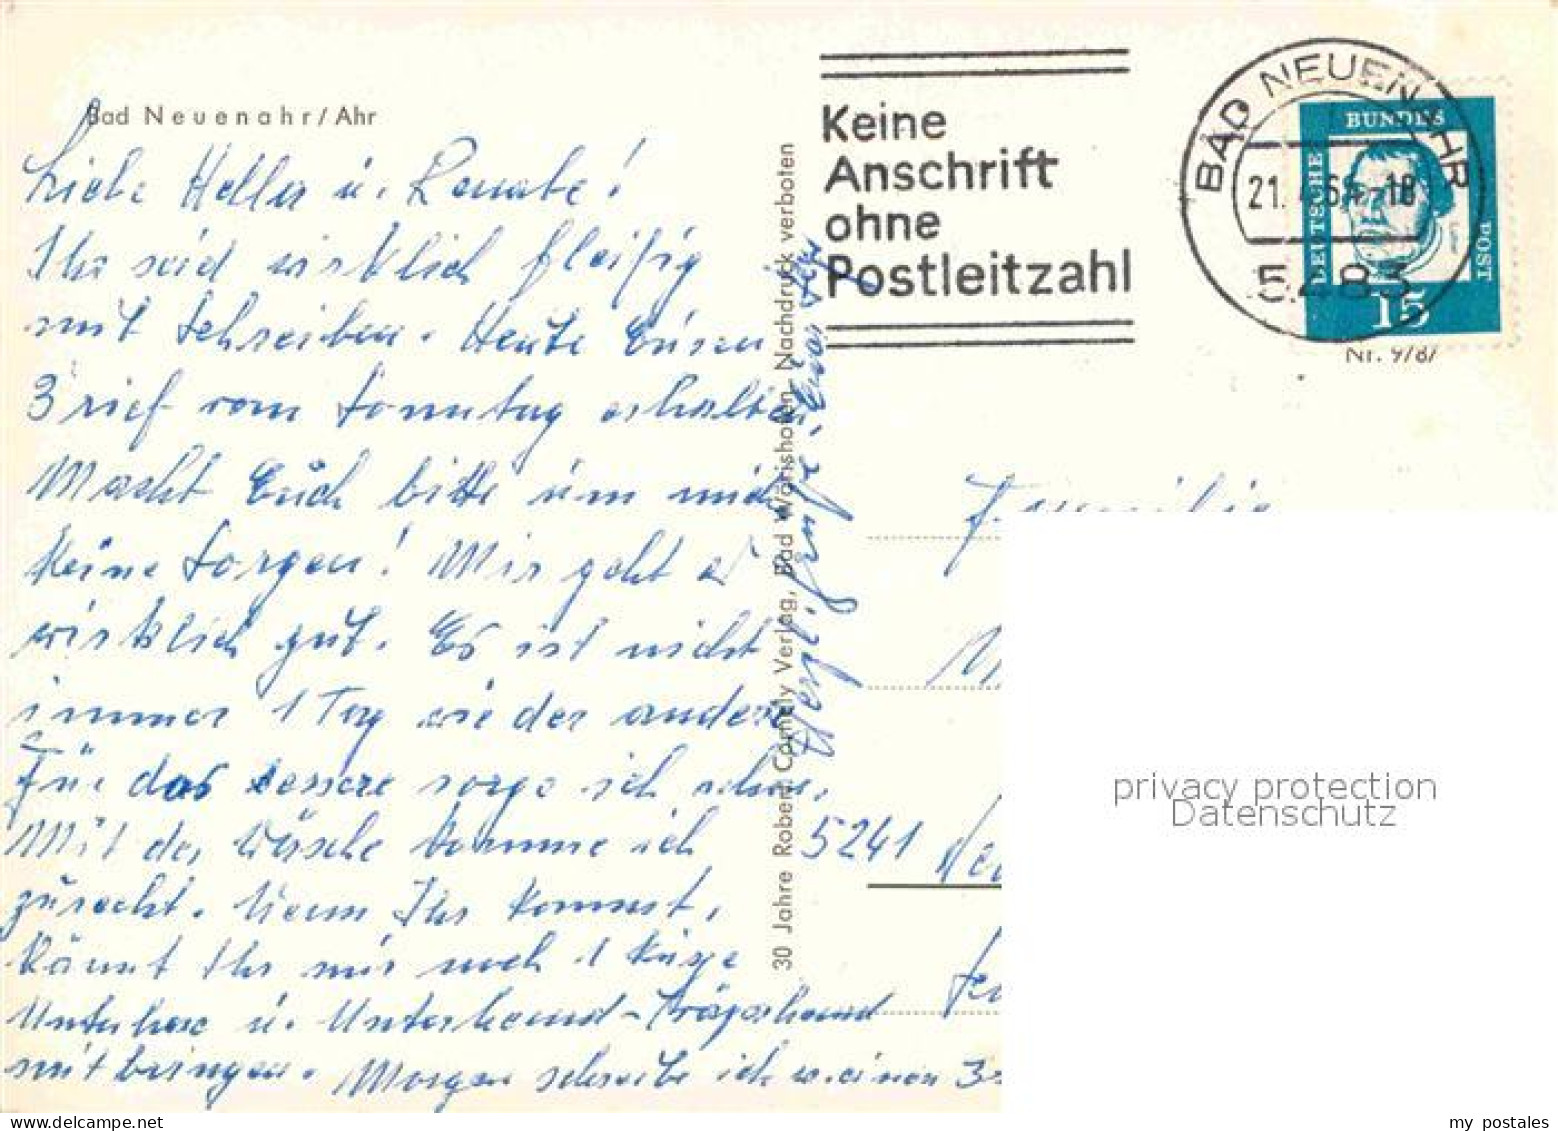 Bad Neuenahr/Ahr
Liebe Hella u. Renate!
Ihr seid wirklich fleißig
mit Schreiben. Heute Euren
Brief vom Sonntag erhalten
Macht Euch bitte um mich
keine Sorgen! Mir geht es
wirklich gut. Es ist nicht
immer 1 Tag wie der andere
Für das bessere sorge ich schon.
Mit der Wäsche komme ich
zurecht. Wenn Ihr kommt,
könnt Ihr mir noch 1 kurze
Unterhose u. Unterhemd-Trägerhemd
mitbringen. Morgen schreibe ich w. einen
Herzl. Grüße, Euer
30 Jahre Robert Cornely Verlag, Bad Wörishofen Nachdruck verboten
Keine
Anschrift
ohne
Postleitzahl
BAD NEUENAHR
21. 4.64.-18
5483
DEUTSCHE
BUNDES
POST
15
Nr. 9/87
Familie
5241
privacy protection
Datenschutz
DELCAMPE.NET
my postales